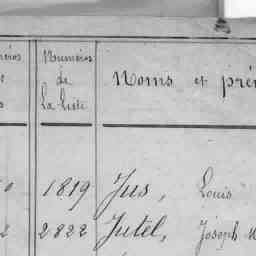 Numéros de la liste
Noms et pré
1819 Jus, Louis
2822 Jutel, Joseph